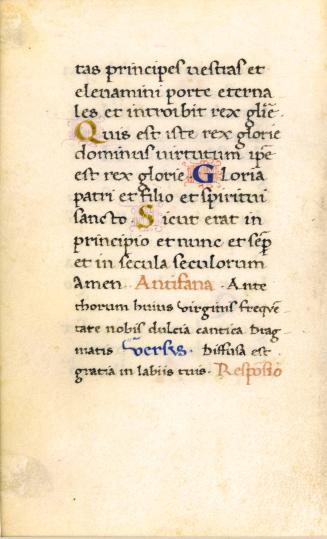 tas principes uestras et
eleuamini porte eterna
les et introibit rex glīe ·
Quis est iste rex glorie
dominus uirtutum ip̄e
est rex glorie Gloria
patri et filio et spiritui
sancto Sicut erat in
principio et nunc et sēp
et in secula seculorum
Amen Antifana · Ante
thorum huius uirginis freque᷃
tate nobis dulcia cantica drag
matis Versus · Diffusa est
gratia in labiis tuis · Respōsio